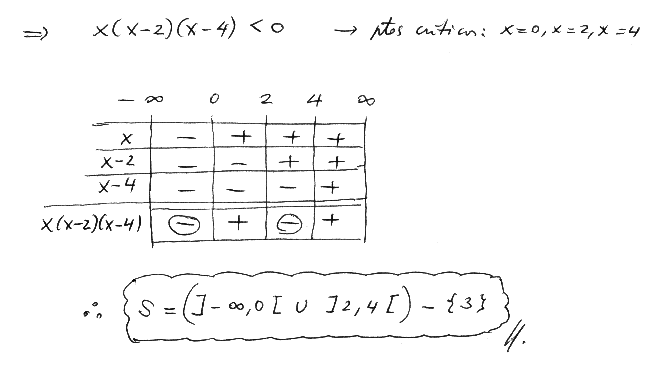 ⇒ x(x-2)(x-4) < 0 → ptos críticos: x=0, x=2, x=4
-∞ 0 2 4 ∞
x - + + +
x-2 - - + +
x-4 - - - +
x(x-2)(x-4) ⊖ + ⊖ +
∴ S = (]-∞,0[ ∪ ]2,4[) - {3} //.